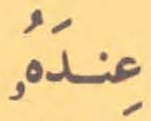 عِندَهُۥ